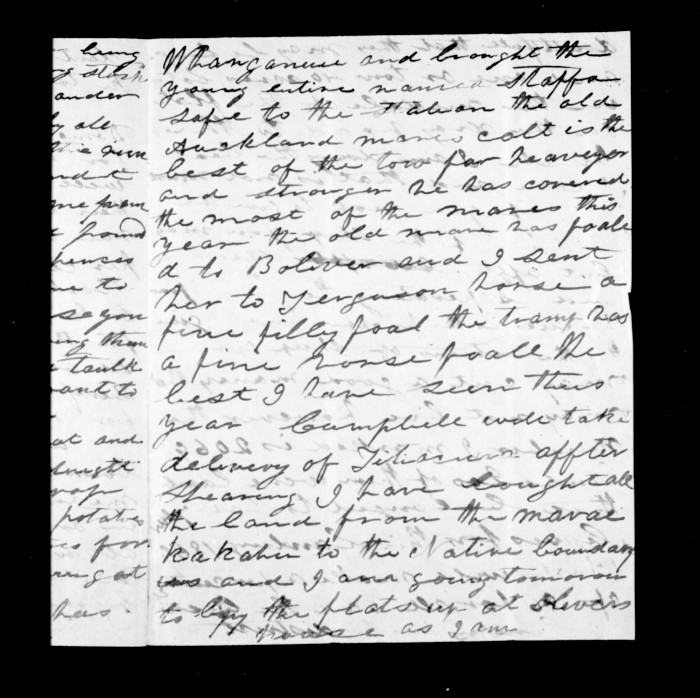 being
stock
ander
all
run
me from
found
penses
to
se you
ing them
taulk
want to
at and
drought
potatoes
for
at
has.
Whanganue and brought the
young entire named Staffa
safe to the Station the old
Auckland mares colt is the
best of the tow far heaveyer
and stronger he has covered
the most of the mares this
year the old mare has foale
d to Boliver and I sent
her to Ferguson horse a
fine filly foal the tramp has
a fine horse foall the
best I have seen theis
year Campbell will take
delivery of affter
Shearing I have bought all
the land from the
kakahu to the Native boundary
and I am going tomorow
to by the flats up at olivers
as I am